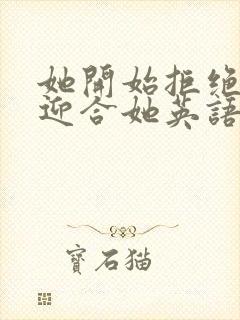 她開始拒絕
迎合她英語
寶石猫